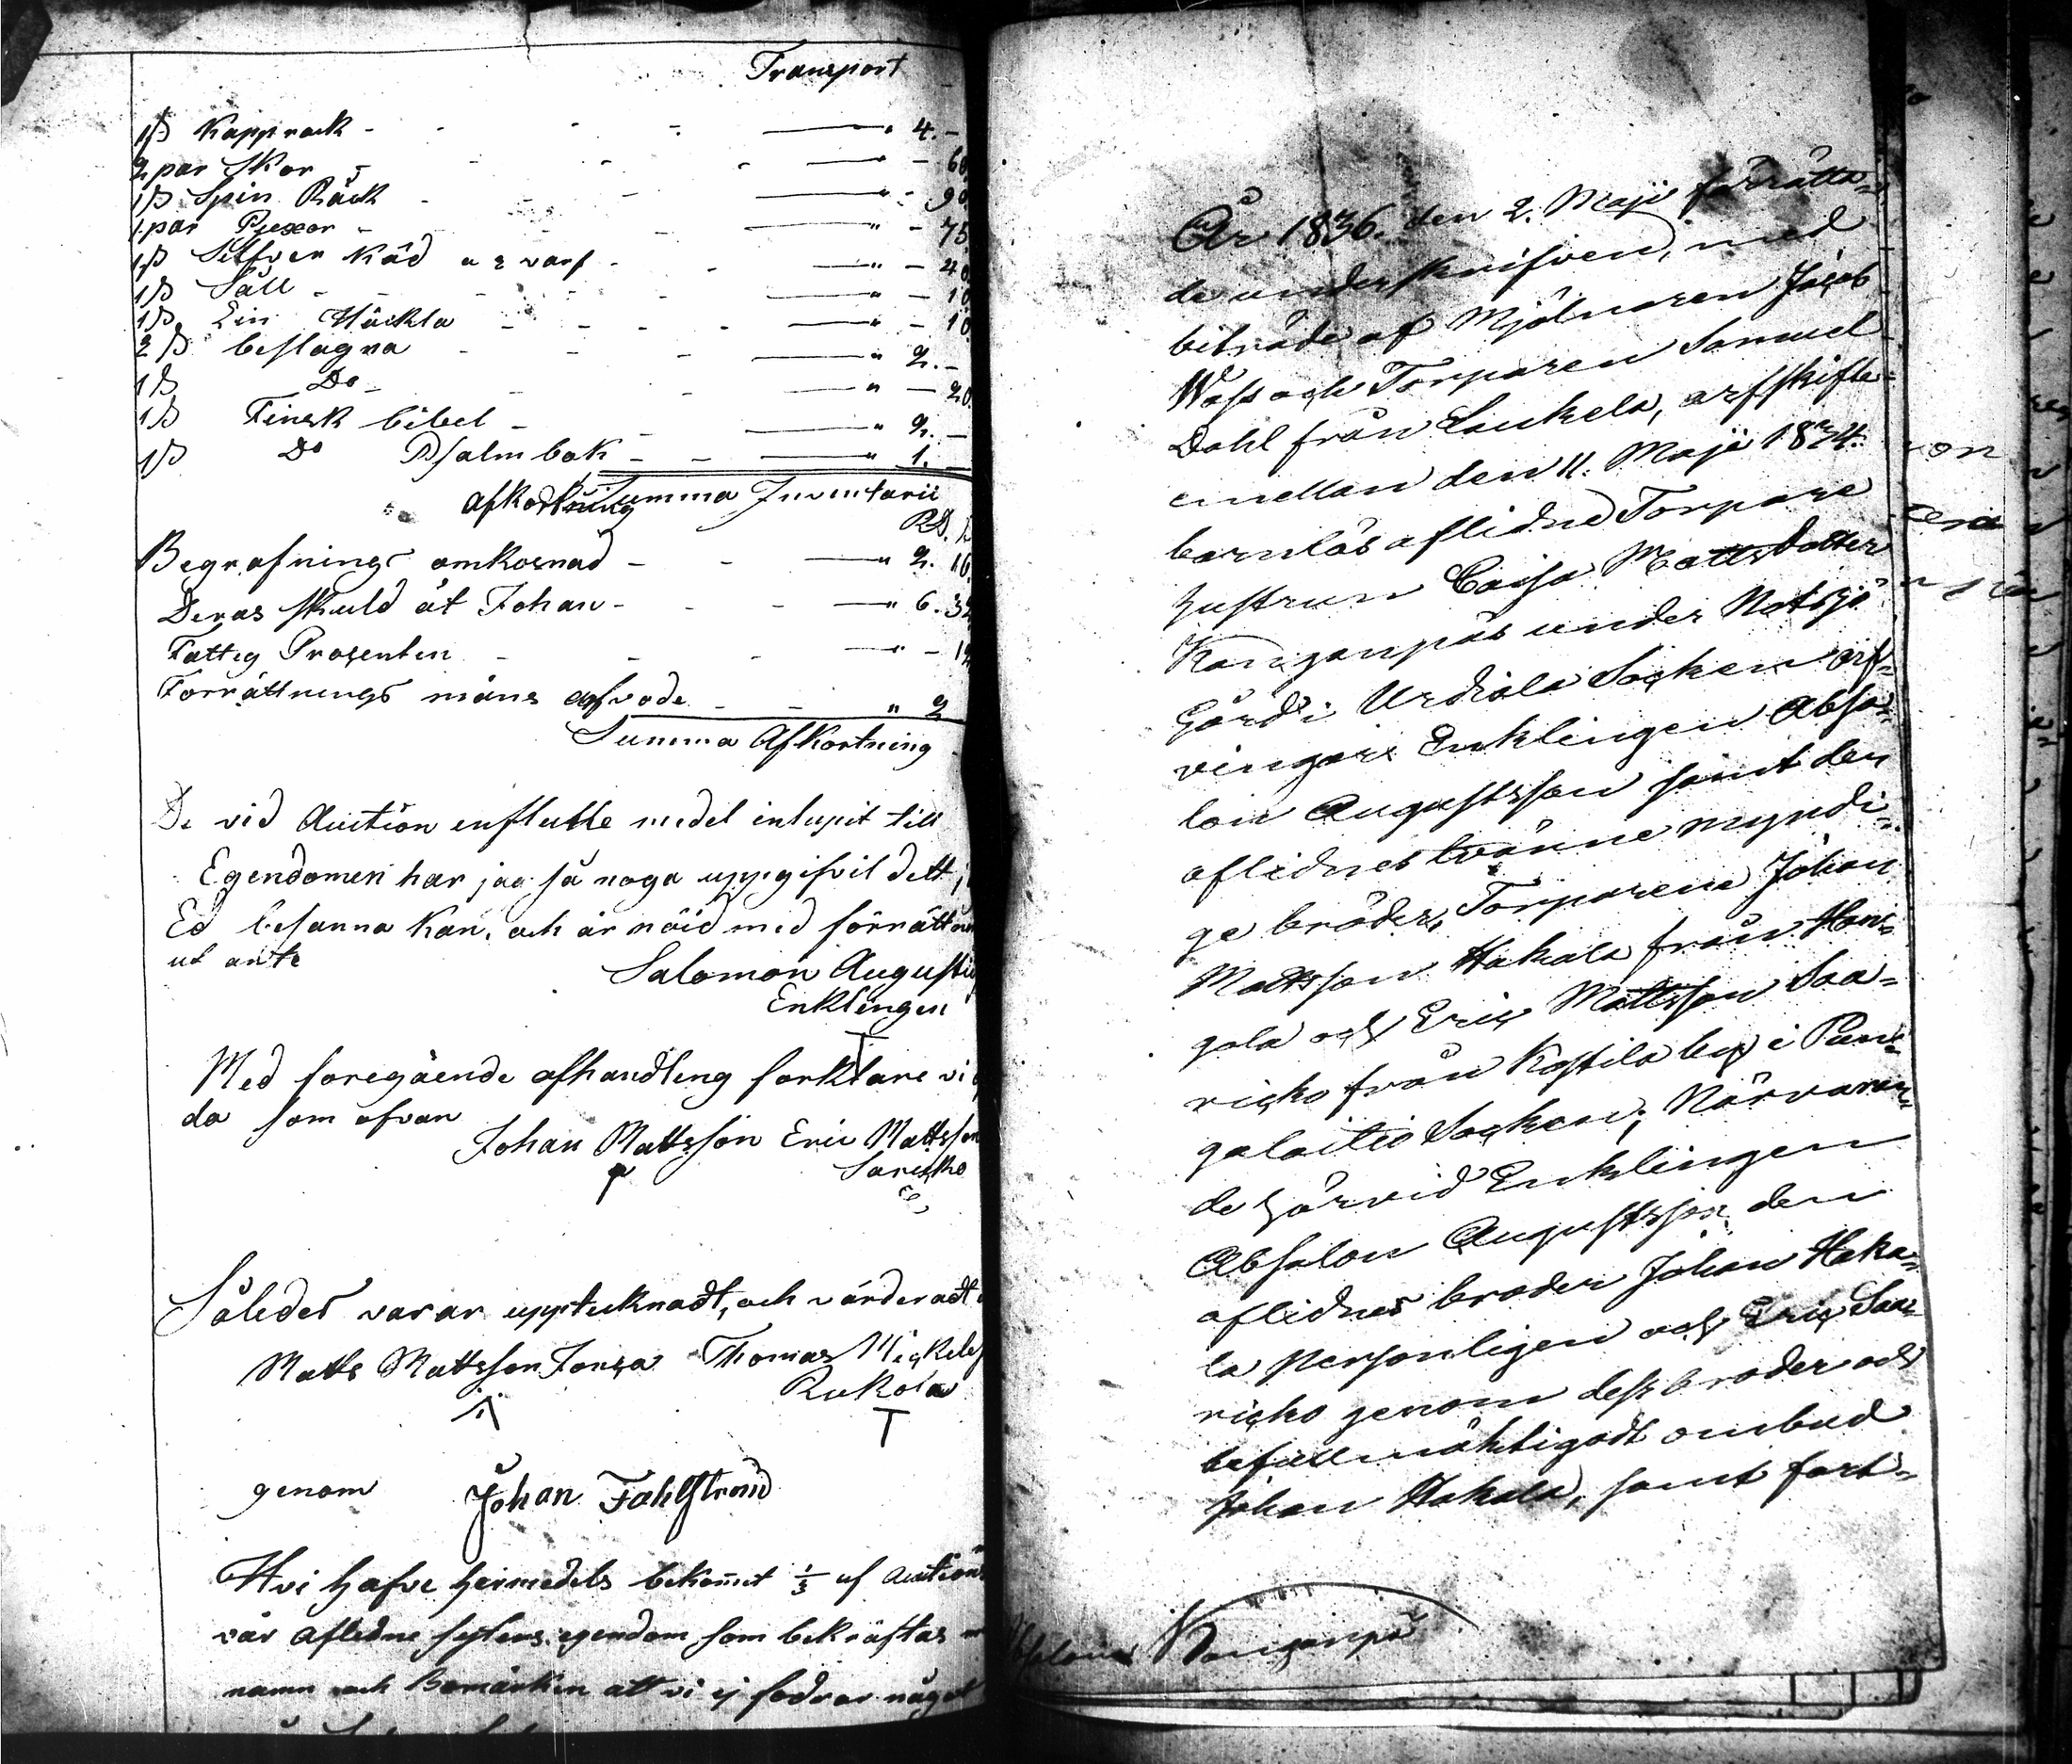 Transport
1 ß Kapprock - - - - 4. -
2 par Skor - - - - 60
1 ß Spin Råck - - - 90
1 par Pjexor - - - 75
1 ß Silfver Käd a 2 varf - - - 40
1 ß Såll - - - - 10
1 ß Lin Häckla - - - - 10
2 ß beslagna - - - 2. -
1 ß Do - - - 20
1 ß Finsk bibel - - - 2. -
1 ß Do Psalm bok - - - 1. -
Summa Inventarii
Afkortning
Begrafnings omkosnad - - - 2. 16
Deras skuld åt Johan - - - 6. 32
Fattig Prosenten - - - -
Forrättnings mäns arfvode - - " 2
Summa Afkortning
De vid Auction influtte medel inlupit till
Egendomen har jag så noga uppgifvit dett
Ed besanna kan, och är nöid med förrättnin
ut ante
Salomon August
Enklingen
Med foregående afhandling forklare vi
da som ofvan
Johan Mattsson Eric Mattsson
Sarisko
Således varar upptecknadt, och värderadt
Matts Mattsson Thomas Mickels
Rukola
genom Johan Fahlstrond
Hvi hafve hermedels bekommit 1/3 af Auctions
vår afledne systers egendom som bekräftas
namn och Bomärken att vi ej fodrar något
År 1836. den 2. Maji förrätta-
de underskrifven, med
biträde af Mjölnaren Jacob
Wass och Torparen Samuel
Dahl från Laukela, arfskifte
emellan den 11. Maji 1834.
barnlös aflidne Torpare
hustrun Caisa Mattsdotter
Kanganpäs under Notsjö
Gård i Urdiala Socken arf-
vingar: Enklingen Absa-
lon Augustsson samt den
aflidnes tvänne myndi-
ge bröder, Torparene Johan
Mattsson Hakala från Hon-
gola och Eric Mattsson Saa-
risko från Kostila by i Pun-
galaitio Socken; Närvaran-
de härvid Enklingen
Absalon Augustsson, den
aflidnes broder Johan Haka-
la personligen och Eric Saa-
risko genom dess broder och
befullmäktigadt ombud
Johan Hakala, samt fort-
Kanganpä